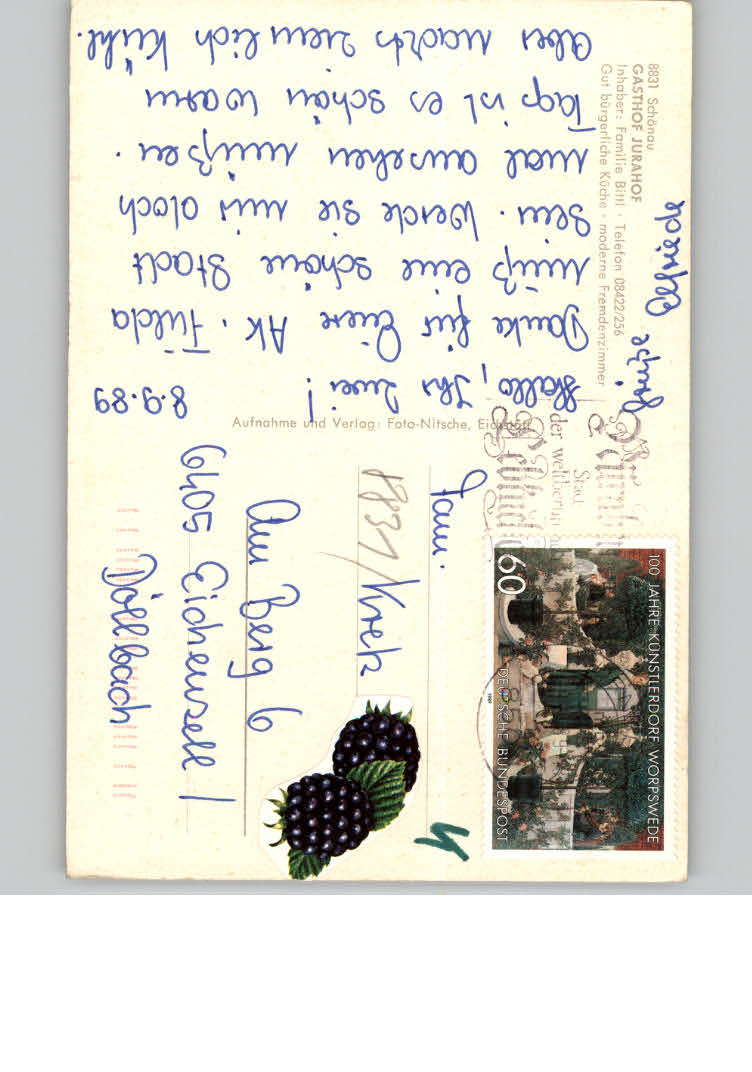 8831 Schönau
GASTHOF JURAHOF
Inhaber: Familie Bittl · Telefon 08422/256
Gut bürgerliche Küche · moderne Fremdenzimmer
8.9.89
Hallo, Ihr zwei!
Danke für Eiere AK. Fulda
muß eine schöne Stadt
sein. Werde sie mir doch
mal ansehen müßen.
Tags ist es schön warm
aber nachts ziemlich kühl.
Grüße
Elfriede
Aufnahme und Verlag: Foto-Nitsche, Eichstätt
Stadt
der weltberühmten
100 JAHRE KÜNSTLERDORF WORPSWEDE
60
DEUTSCHE BUNDESPOST
Fam.
8831
Am Berg 6
6405 Eichenzell /
Döllbach